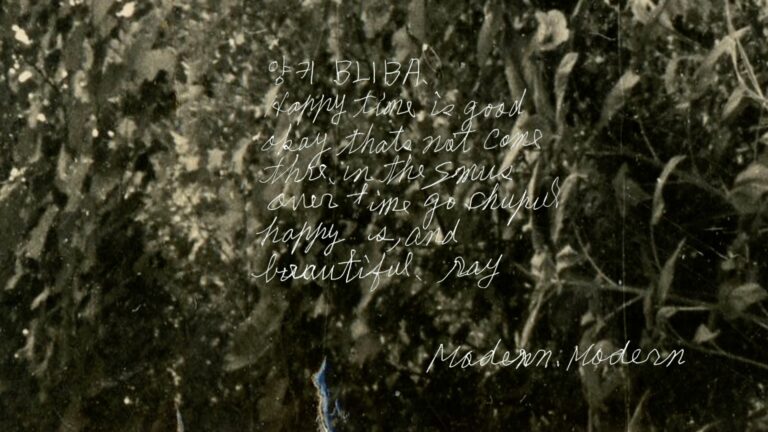 양키 BLIBA.
Happy time is good
okay thats not come
thre, in the smus
over time go
happy is, and
beautiful. ray
Modern. Modern